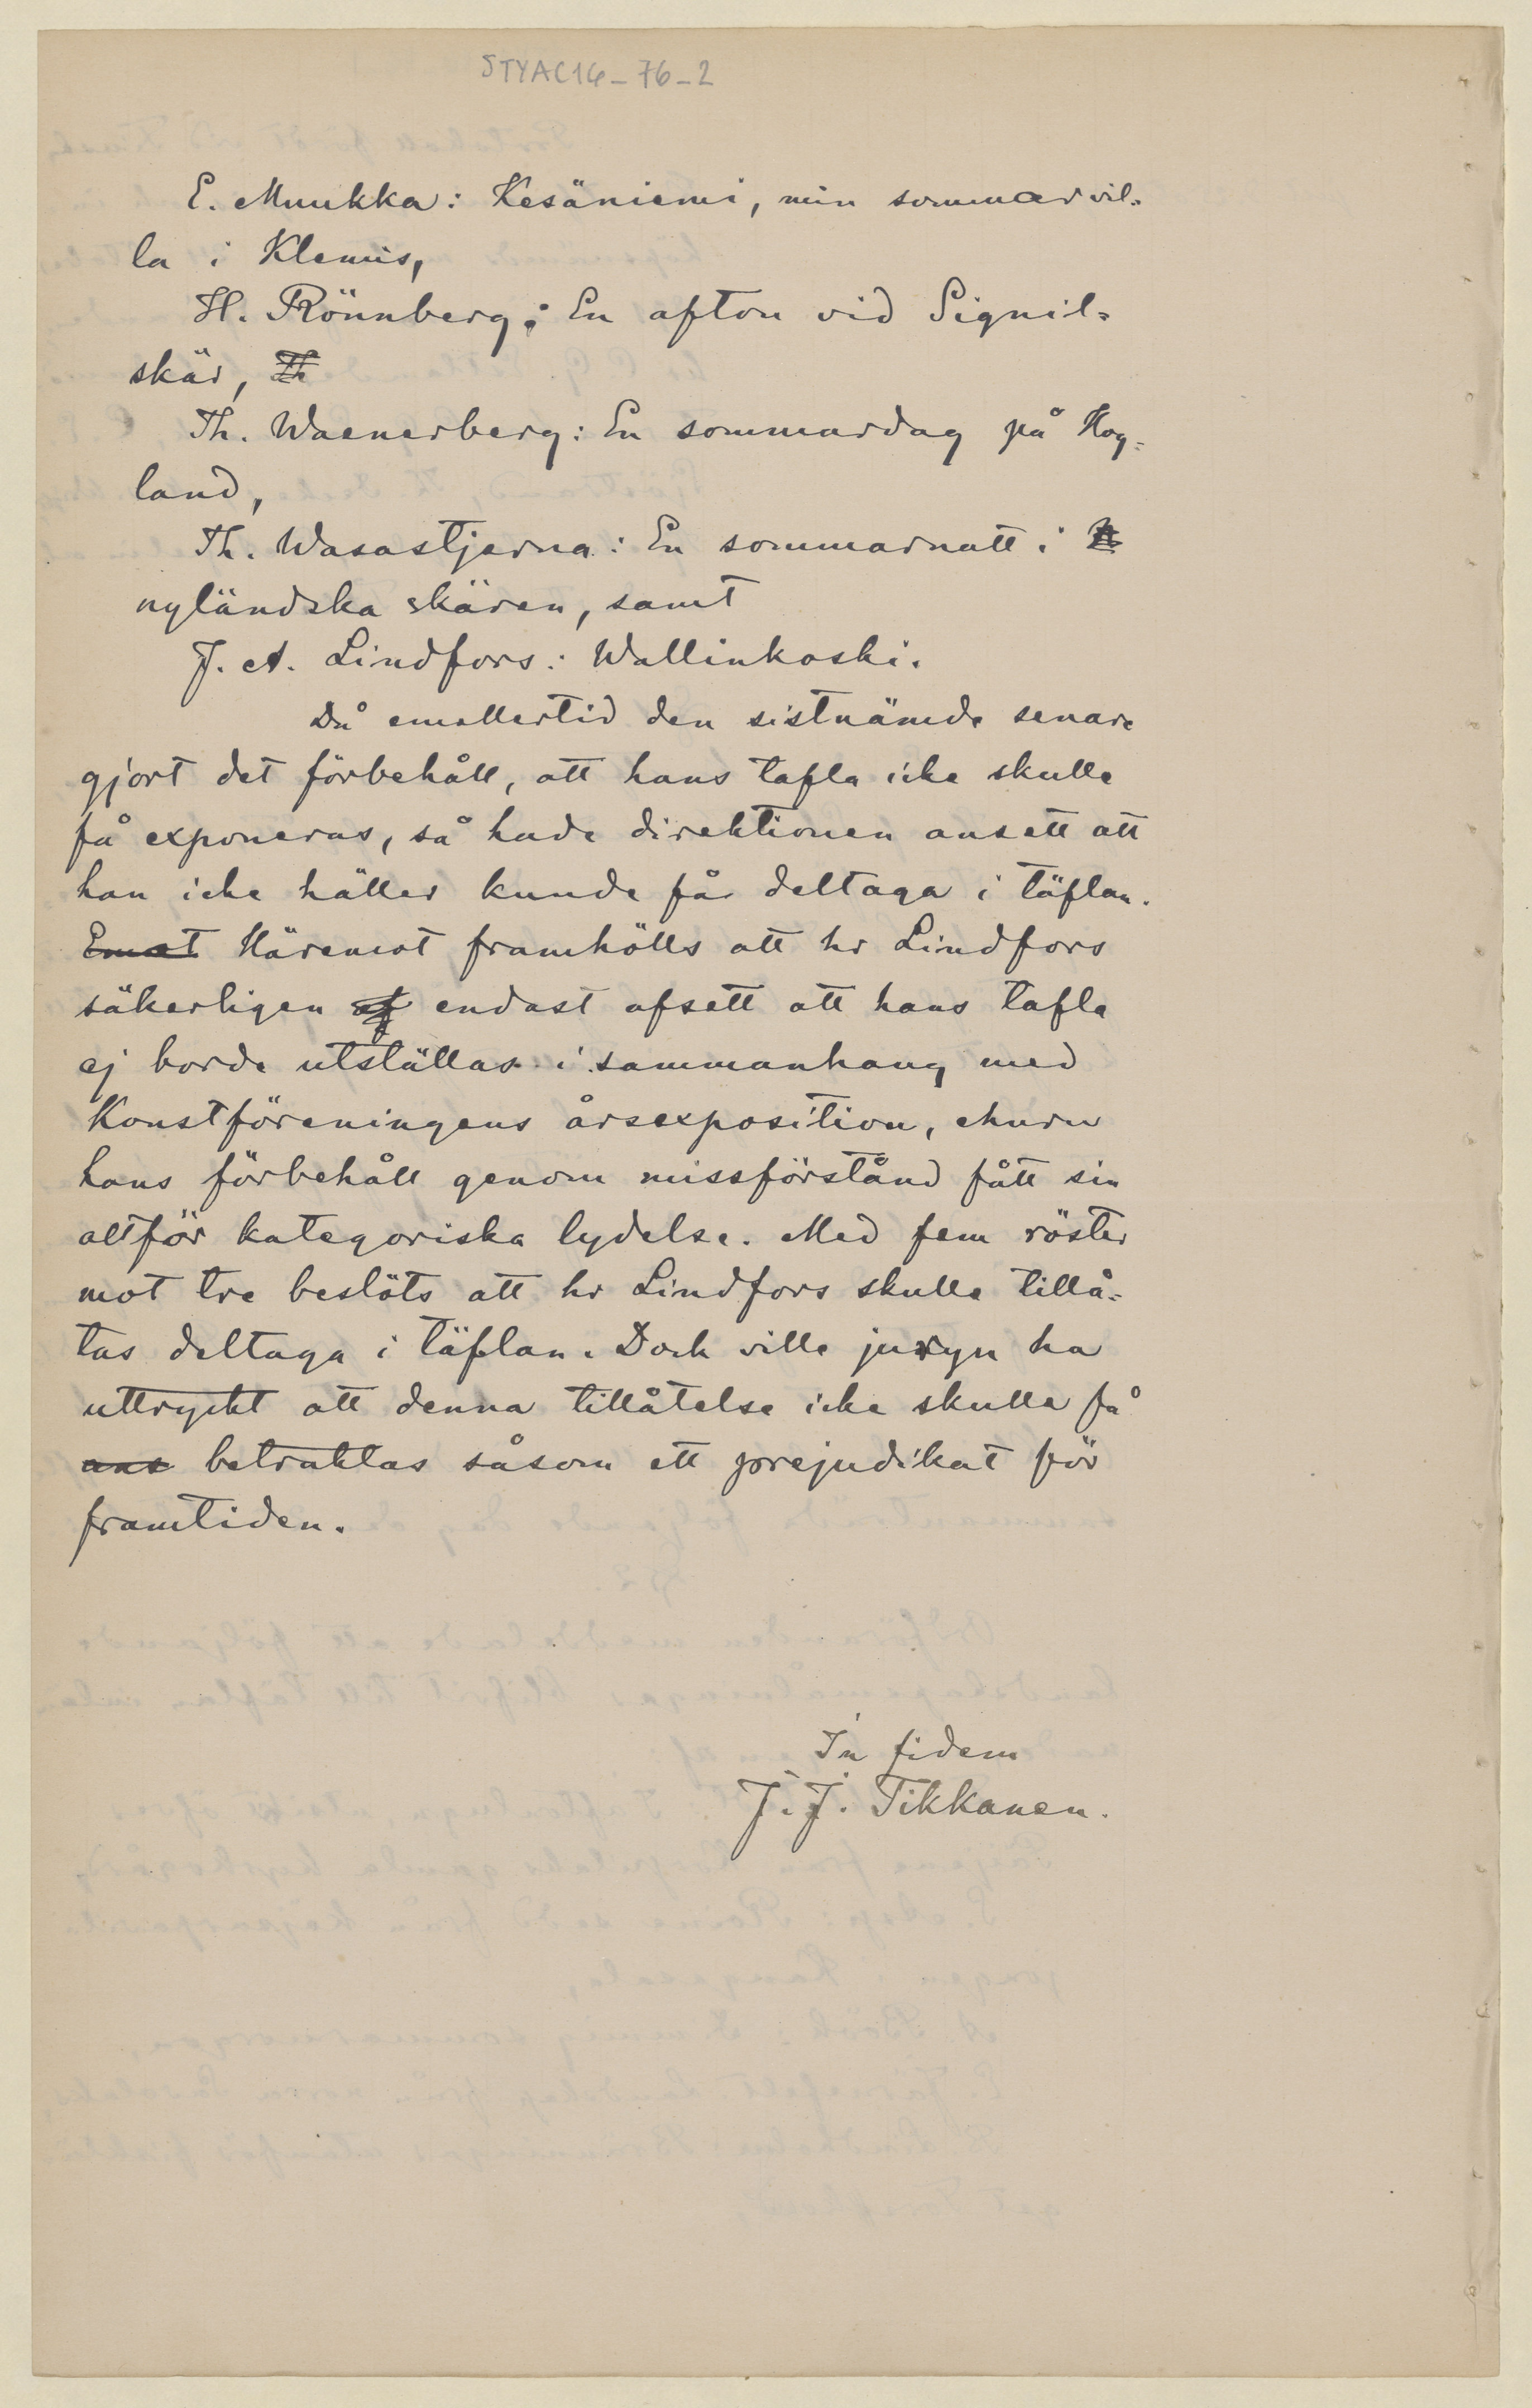 STYAC14-76-2
E. Muukka: Kesäniemi, min sommarvil-
la i Klemis,
H. Rönnberg: En afton vid Signil-
skär, Th
Th. Waenerberg: En sommardag på Hog-
land,
Th. Wasastjerna: En sommarnatt i
nyländska skären, samt
J. A. Lindfors: Wallinkoski.
Då emellertid den sistnämde senare
gjort det förbehåll, att hans tafla icke skulle
få exponeras, så hade direktionen ansett att
han icke häller kunde få deltaga i täflan.
Emot Häremot framhölls att hr Lindfors
säkerligen af endast afsett att hans tafla
ej borde utställas i sammanhang med
Konstföreningens årsexposition, ehuru
hans förbehåll genom missförstånd fått sin
altför kategoriska lydelse. Med fem röster
mot tre beslöts att hr Lindfors skulle tillå-
tas deltaga i täflan. Dock ville juryn ha
uttryckt att denna tillåtelse icke skulle få
ans betraktas såsom ett prejudikat för
framtiden.
In fidem
J. J. Tikkanen.